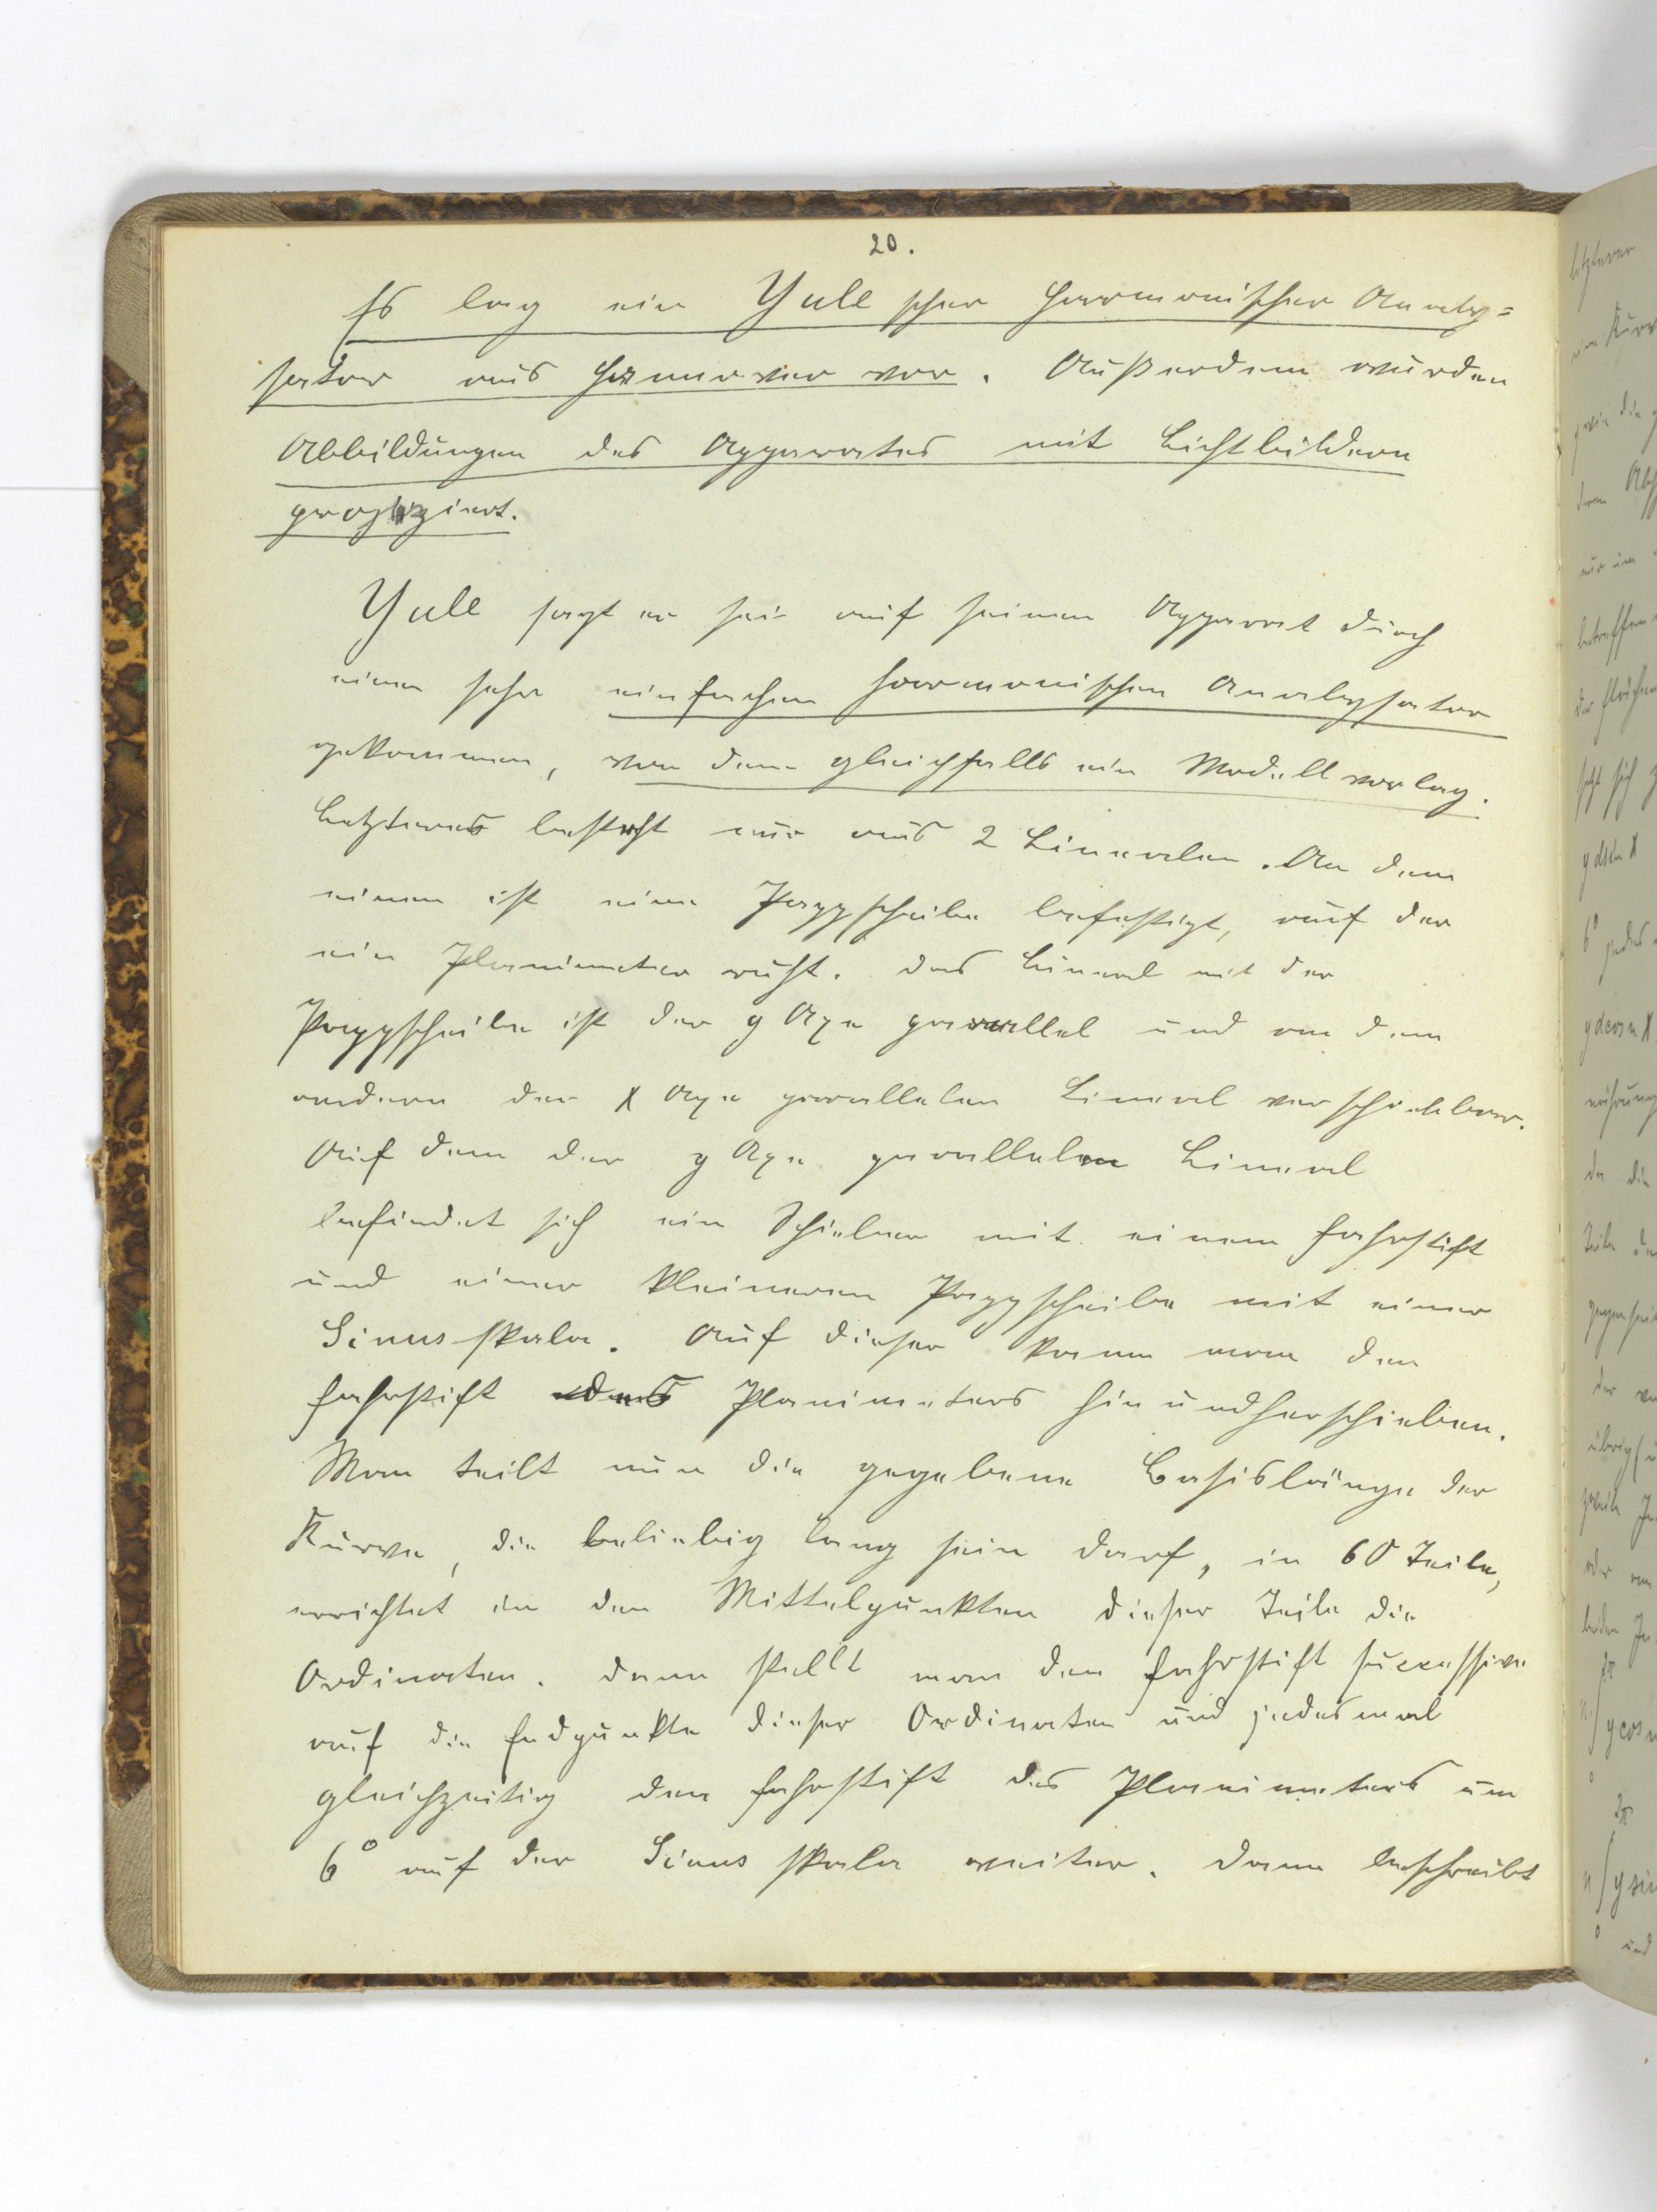 20.
Es lag ein Yule scher Harmonischer Analy=
sator aus Hannover vor. Außerdem wurden
Abbildungen des Apparates mit Lichtbildern
projiziert.
Yule sagt er sei auf seinen Apparat durch
einen sehr einfachen harmonischen Analysator
gekommen, von dem gleichfalls ein Modell vorlag.
Letzteres besteht nur aus 2 Linealen. An dem
einen ist eine Pappscheibe befestigt, auf der
ein Planimeter ruht. Das Lineal mit der
Pappscheibe ist der y Axe parallel und an dem
andern der x Axe parallelen Lineal verschiebbar.
Auf dem der y Axe parallelen Lineal
befindet sich ein Schieber mit einem Fahrstift
und einer kleineren Pappscheibe mit einer
Sinusskala. Auf dieser kann man den
Fahrstift des Planimeters hinundherschieben.
Man teilt nun die gegebene Basislänge der
Kurve, die beliebig lang sein darf, in 60 Teile,
errichtet in den Mittelpunkten dieser Teile die
Ordinaten. Dann stellt man den Fahrstift successive
auf die Endpunkte dieser Ordinaten und jedesmal
gleichzeitig den Fahrstift des Planimeters um
6° auf der Sinus skala weiter. Dann beschreibt